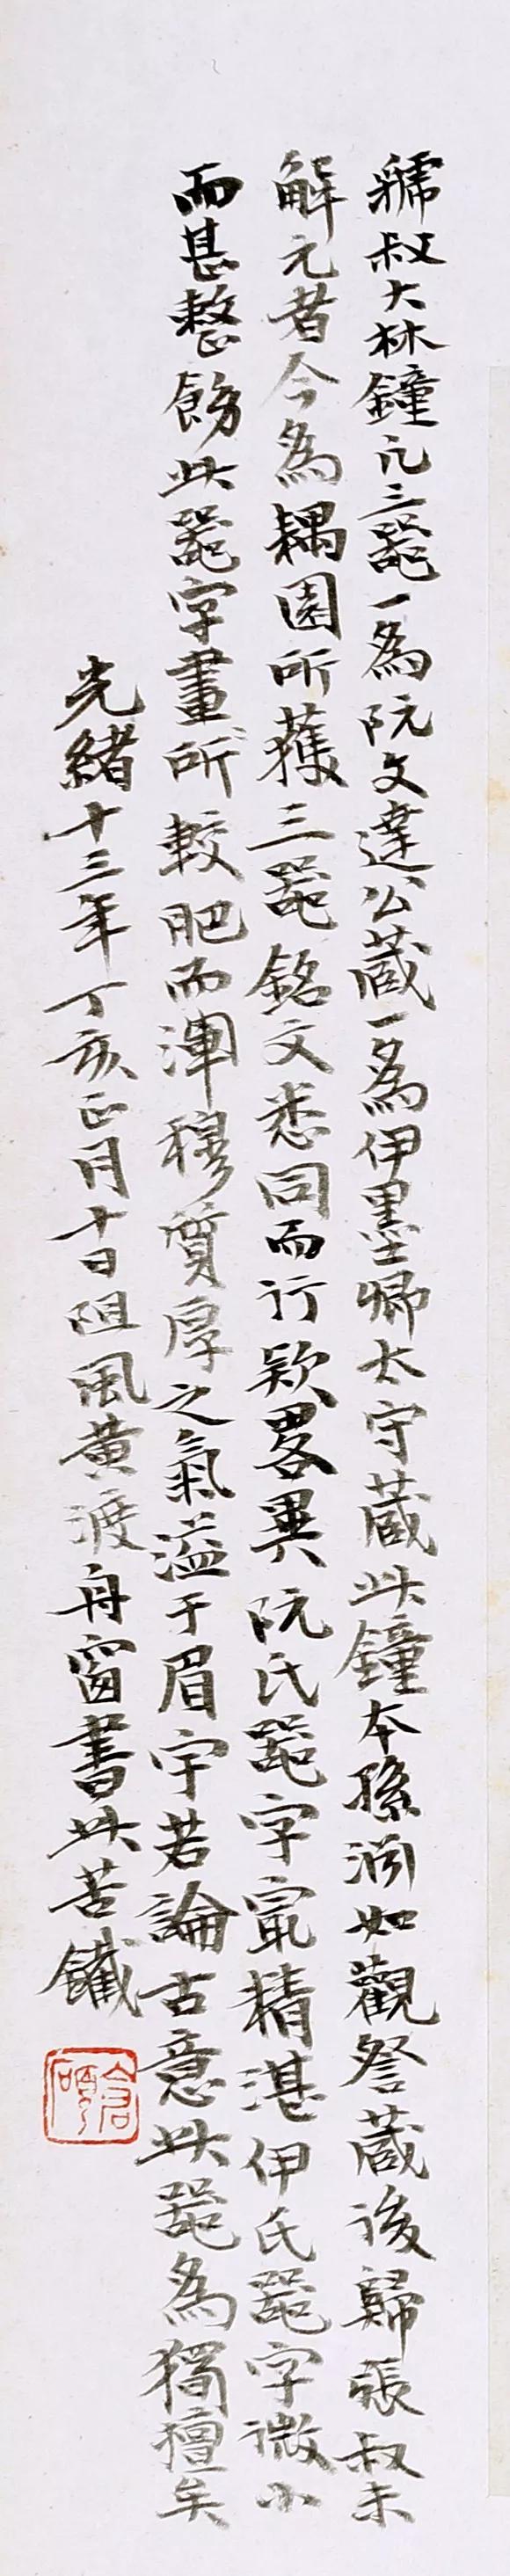 虢叔大林鐘凡三器一為阮文達公蔵一為伊墨卿太守蔵此鐘本孫淵如觀詧蔵後歸張叔未
解元者今為耦園所獲三器銘文悉同而行款畧異阮氏器字冣精湛伊氏器字微小
而甚整飭此器字畫所較肥而渾穆質厚之氣溢于眉宇若論古意此器為獨擅矣
光緒十三年丁亥正月十日阻風黄渡舟窗書此苦鐵
倉碩